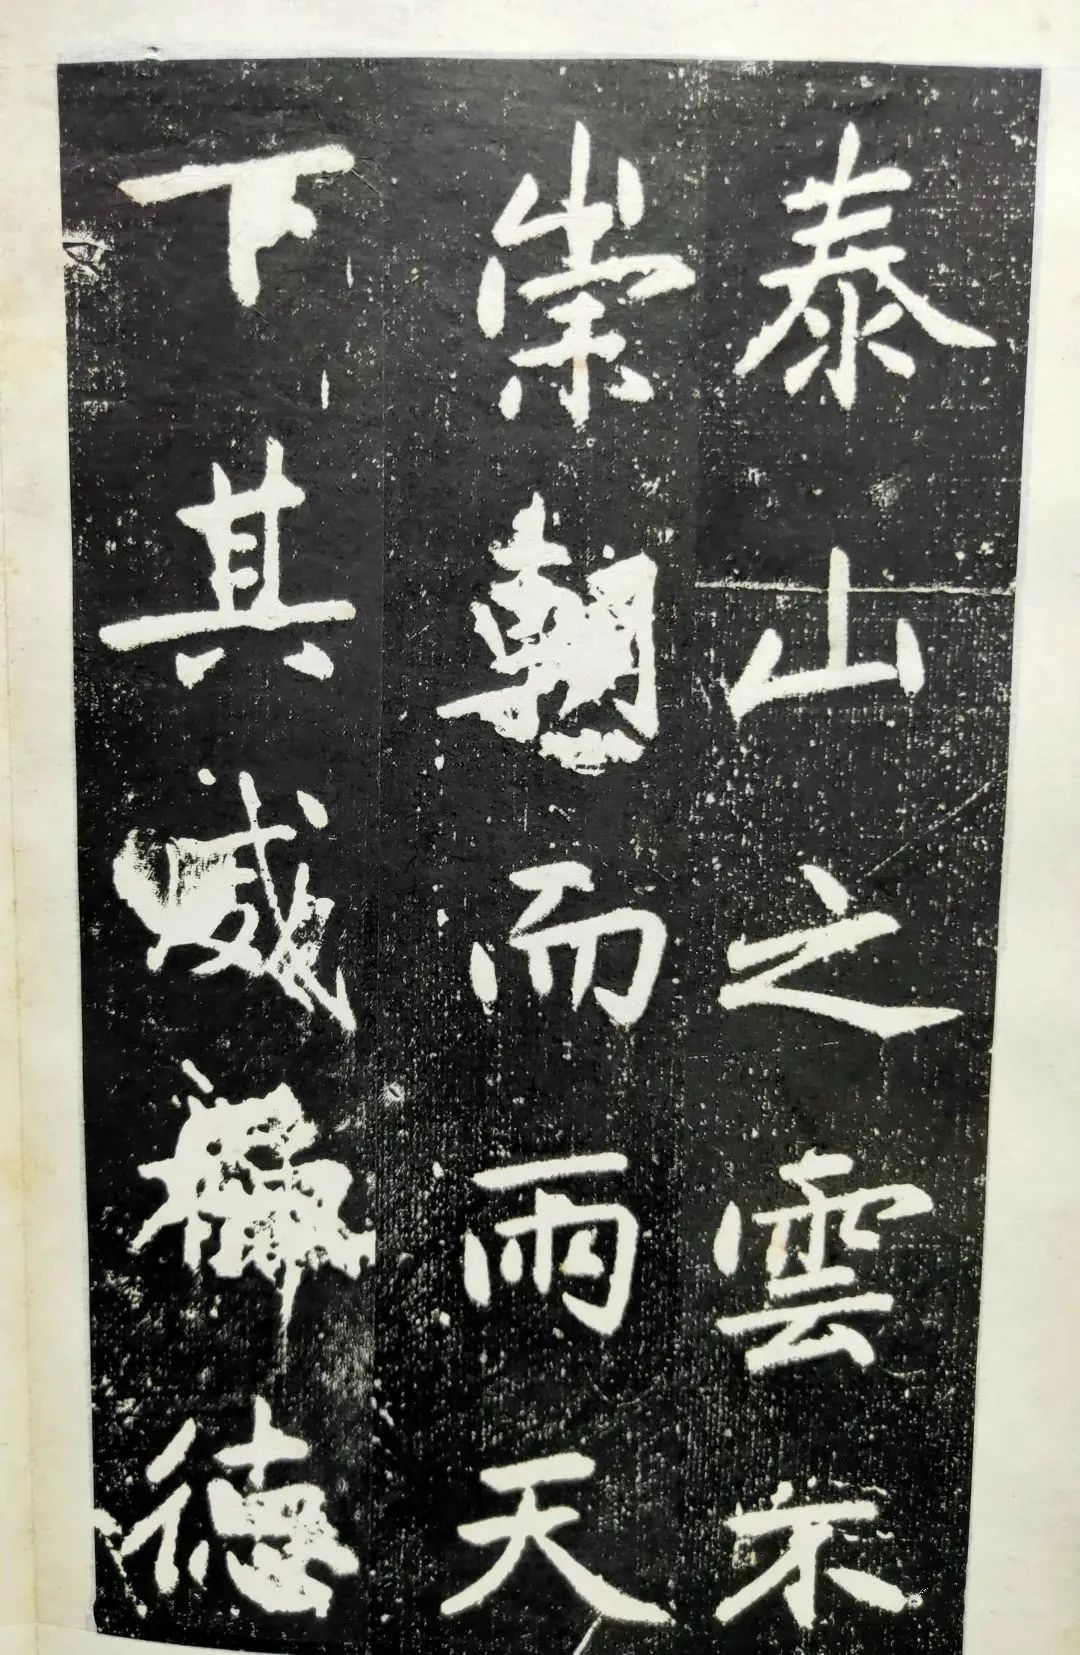 泰山之雲不
崇朝而雨天
下其威德